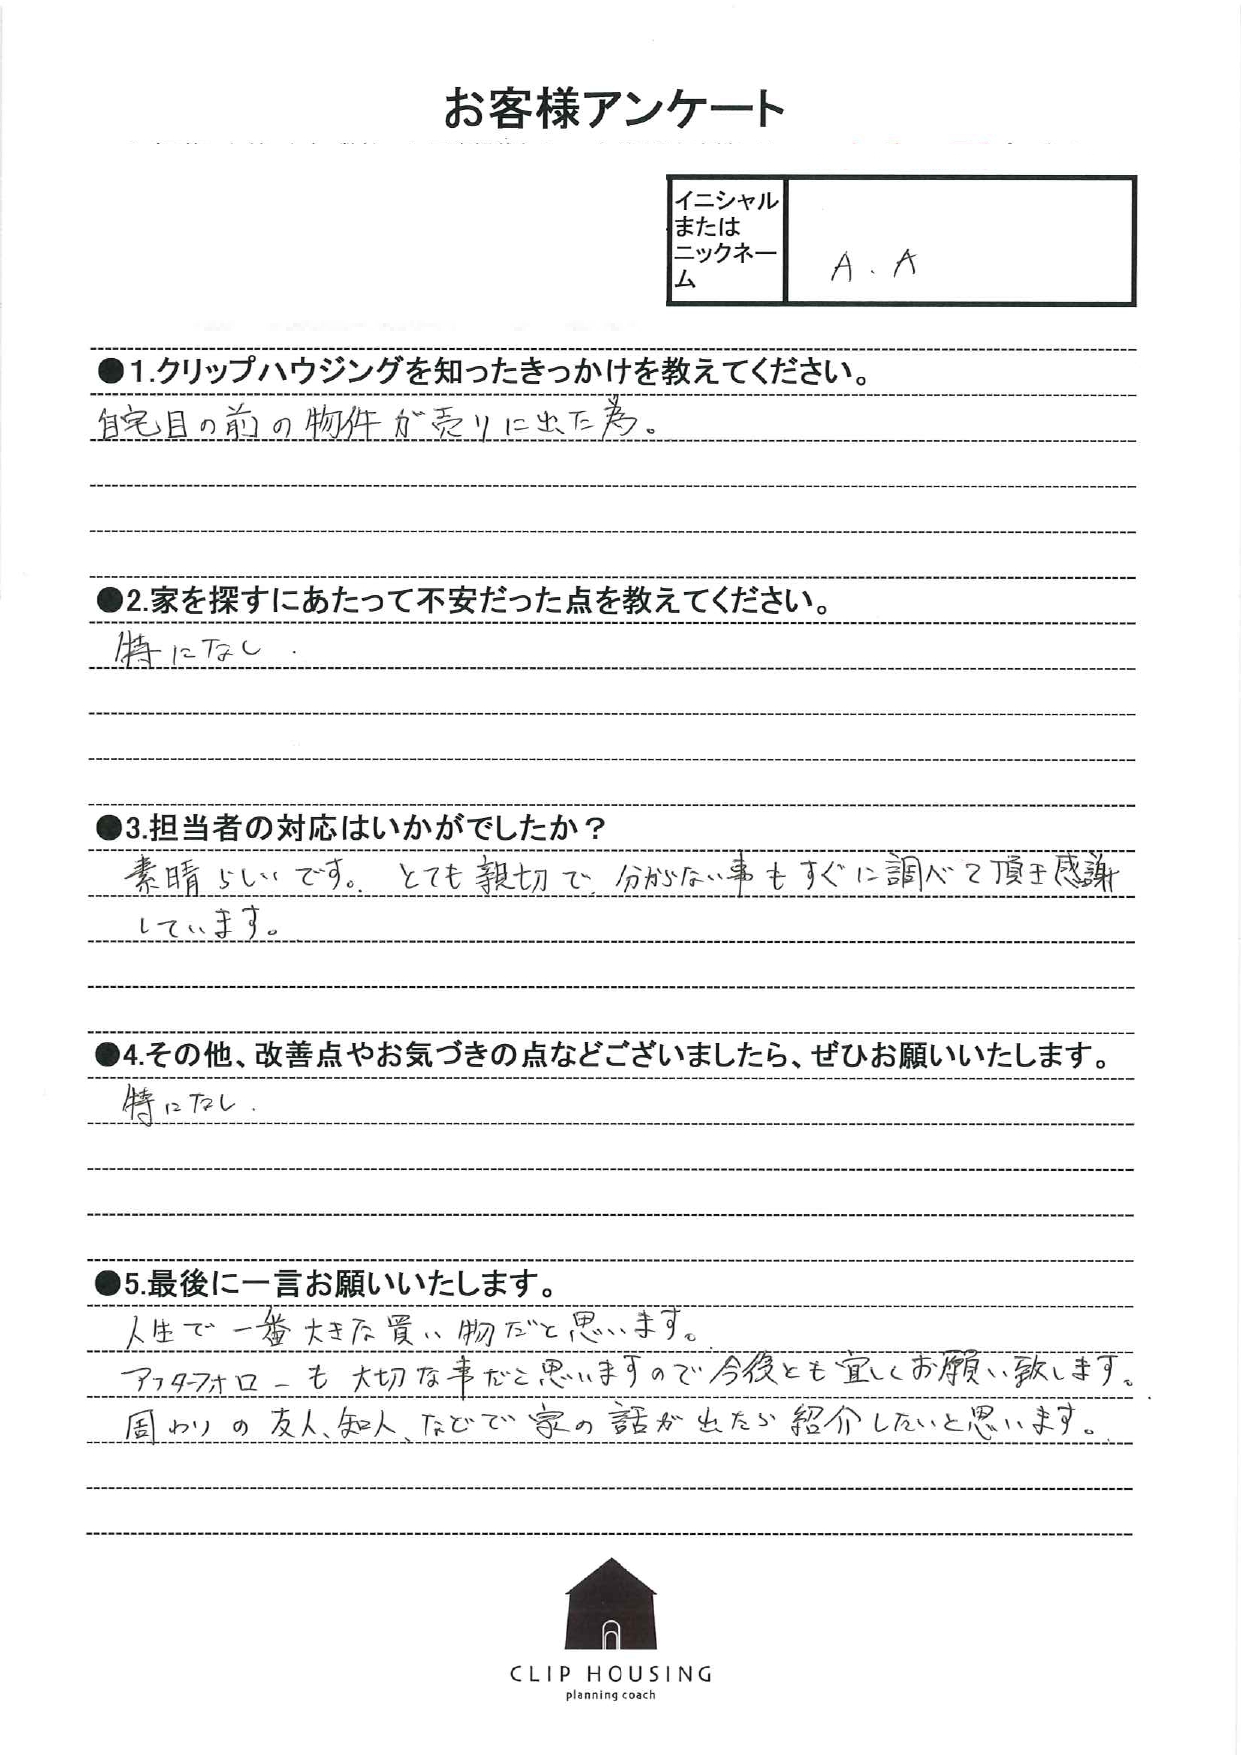 お客様アンケート
イニシャル
または
ニックネー
ム
A.A
●1.クリップハウジングを知ったきっかけを教えてください。
自宅目の前の物件が売りに出た為。
●2.家を探すにあたって不安だった点を教えてください。
特になし.
●3.担当者の対応はいかがでしたか?
素晴らしいです。とても親切で、分からない事もすぐに調べて頂き感謝
しています。
●4.その他、改善点やお気づきの点などございましたら、ぜひお願いいたします。
特になし.
●5.最後に一言お願いいたします。
人生で一番大きな買い物だと思います。
アフターフォローも大切な事だと思いますので今後とも宜しくお願い致します。
周わりの友人、知人、などで家の話が出たら紹介したいと思います。
CLIP HOUSING
planning coach